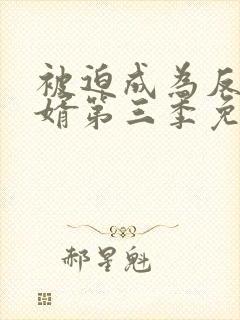 被迫成为反
婿第三季免
郝星魁